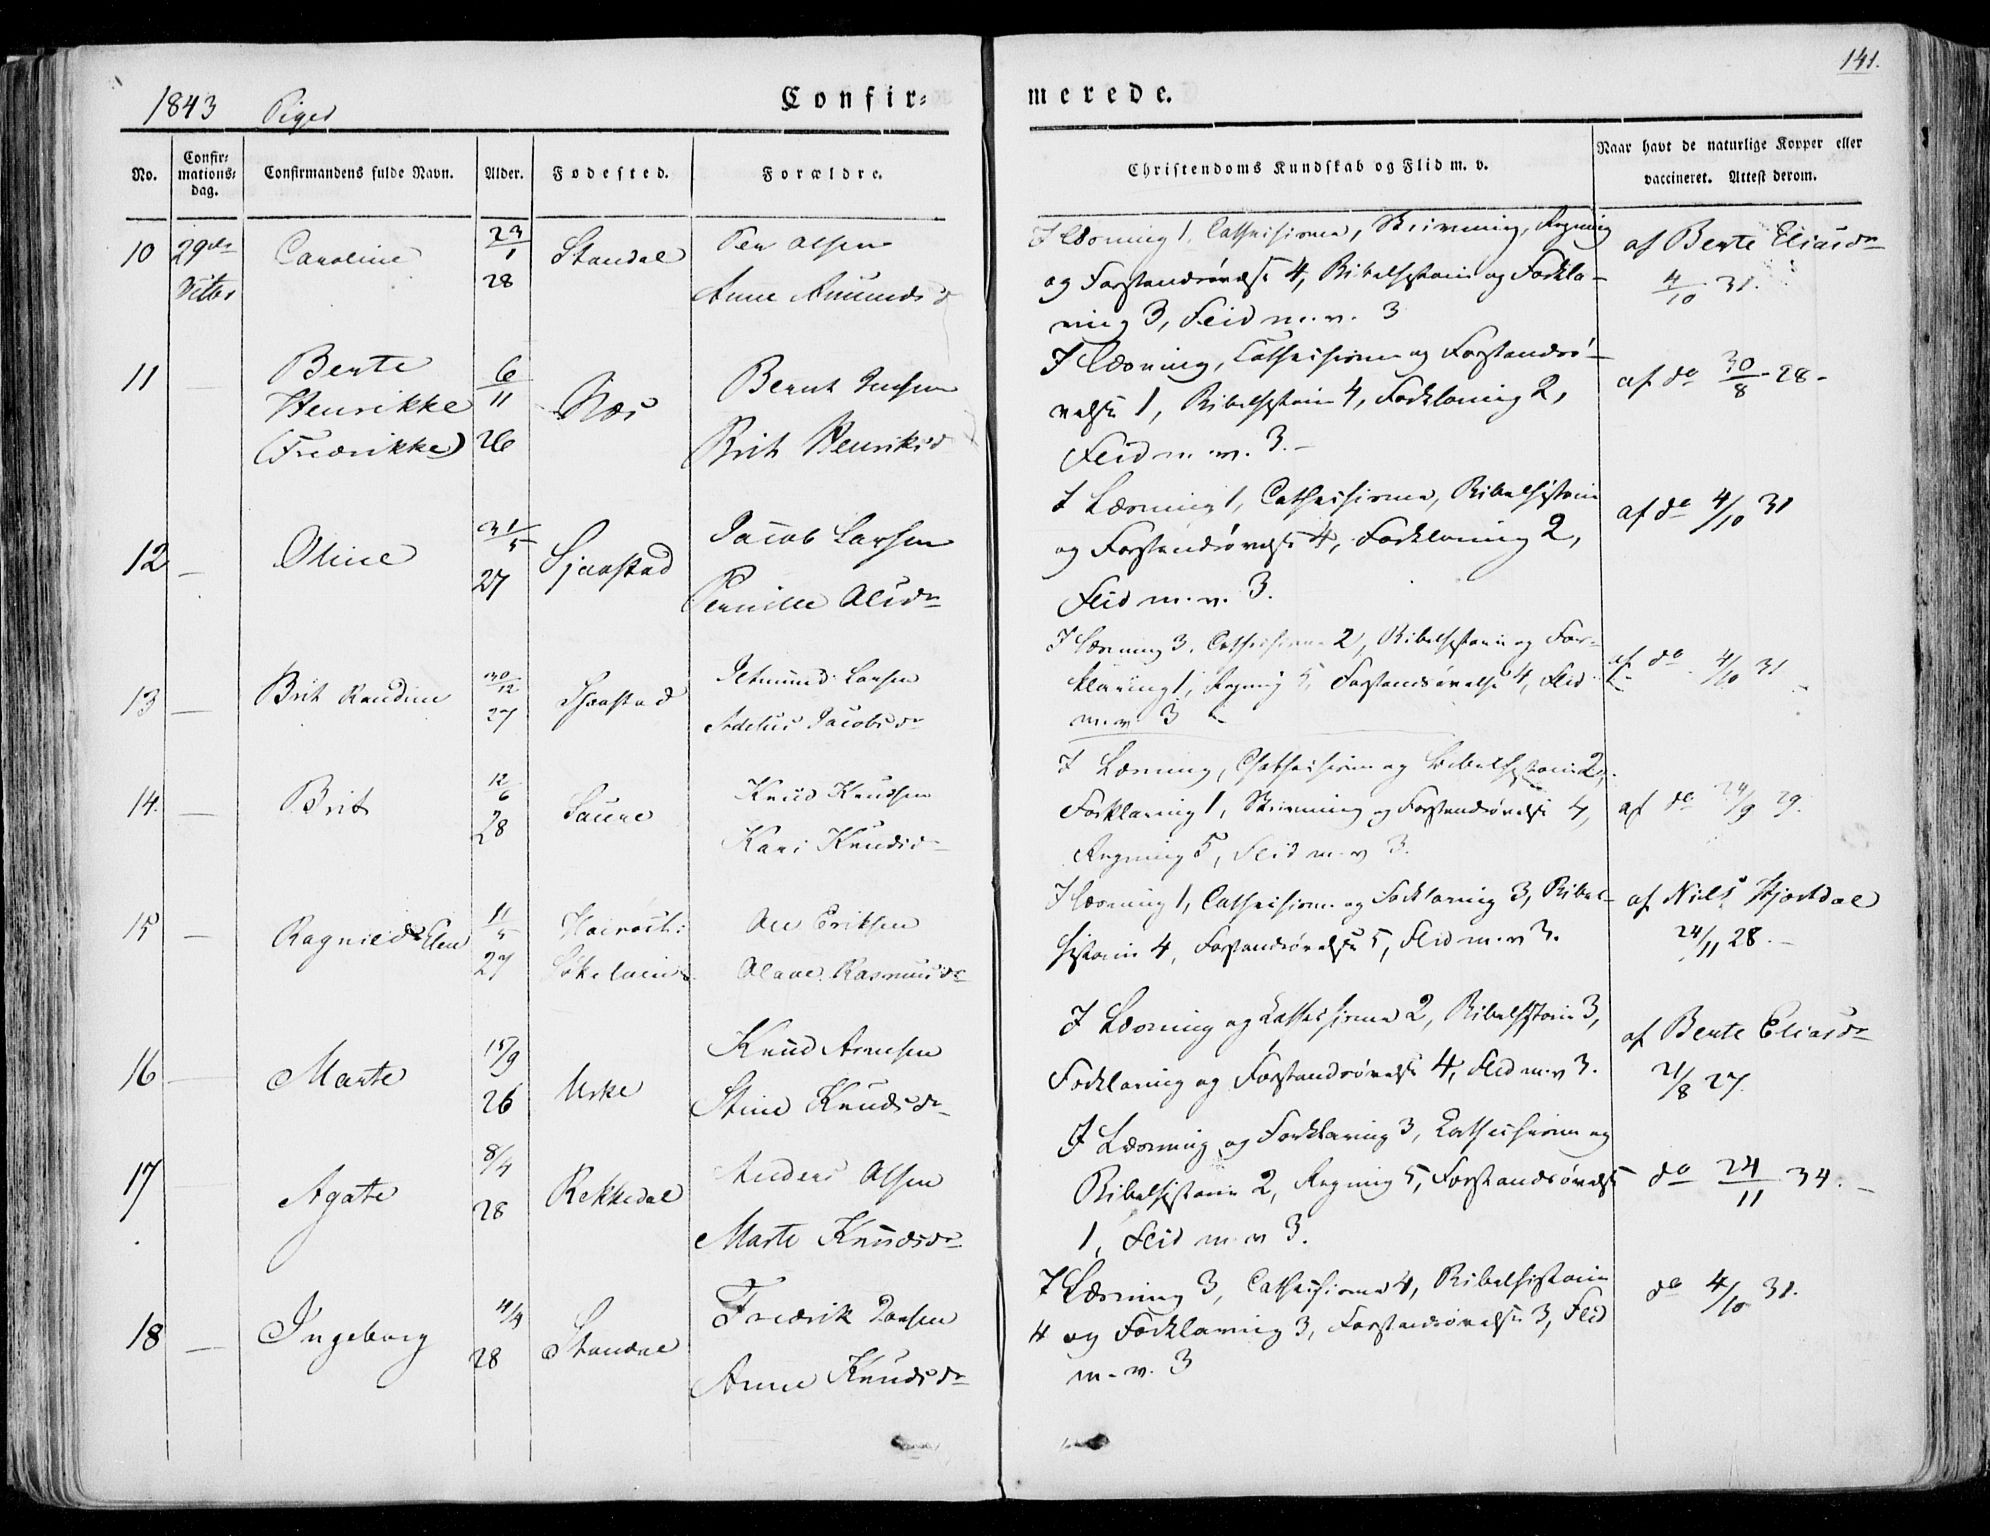 141.
1843 Piger
Confir=
merede.
No.
Confir=
mations=
dag.
Confirmandens fulde Navn.
Alder.
Fødested.
Forældre.
Christendoms Kundskab og Flid m. v.
Naar havt de naturlige Kopper eller
vaccineret. Attest derom.
10 29de Octbr Caroline 23/1 28 Standal
Peer Olsen
Anne Amundsd
I Læsning 1, Cathechismen, Skrivning, Regning
og Forstandsøvelse 4, Bibelhistorie og Forkla-
ring 3, Flid m. v. 3
af Berte Eliasdr
4/10 31.
11 —
Berte
Henrikke
(Fredrikke)
6/11 26 Næs
Bernt
Brit Henriksd
I Læsning, Cathechismen og Forstandsø-
velse 1, Bibelhistorie 4, Forklaring 2,
Flid m. v. 3. –
af do 30/8 28 -
12 — Oline 31/5 27 Sjaastad
Jacob Larsen
Pernille Olsdr
I Læsning 1, Cathechismen, Bibelhistorie
og Forstandsøvelse 4, Forklaring 2,
Flid m. v. 3.
af do 4/10 31
13 — Brit Randine 30/12 27 Sjaastad
Jetmund Larsen
Jacobsdr
I Læsning 3, Cathechismen 2, Bibelhistorie og For-
klaring 1, Regning 5, Forstandsøvelse 4, Flid
m. v. 3
af do 4/10 31
14. — Brit 12/6 28 Saure
Knud Knudsen
Kari Knudsd
I Læsning, Cathechismen og Bibelhistorie 2,
Forklaring 1, Skrivning og Forstandsøvelse 4,
Regning 5, Flid m. v 3.
af do 24/9 29.
15 — Ragnild Elen 11/5 27
Ole Eriksen
Olave Rasmusdr
I Læsning 1, Cathechismen og Forklaring 3, Bibel-
historie 4, Forstandsøvelse 5, Flid m. v 3.
af Niels Hjortdal
24/11 28. —
16 — Marte 15/9 26 Urke
Knud Arnesen
Stine Knudsdr
I Læsning og Cathechismen 2, Bibelhistorie 3,
Forklaring og Forstandsøvelse 4, Flid m. v 3.
af Berte Eliasdr
21/8 27.
17 Agate 8/4 28 Rekkedal
Anders Olsen
Marte Knudsdr
I Læsning og Forklaring 3, Cathechismen og
Bibelhistorie 2, Regning 5, Forstandsøvelse
1, Flid m. v 3.
do 24/11 34. —
18 — Ingeborg 4/4 28 Standal
Fredrik
Anne Knudsdr
I Læsning 3, Cathechismen 4, Bibelhistorie
4 og Forklaring 3, Forstandsøvelse 3, Flid
m. v. 3
do 4/10 31.